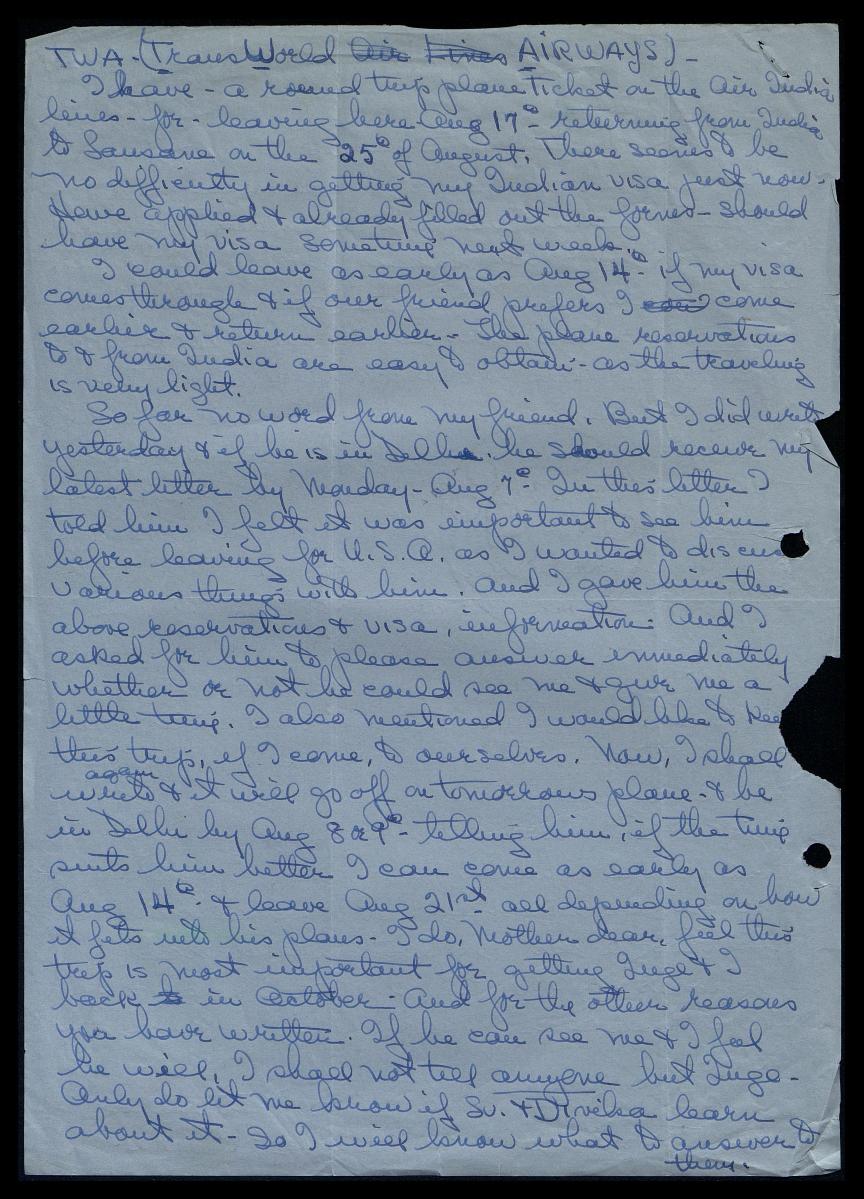 TWA - (Trans World Air Lines AIRWAYS) -
I have - a round trip plane Ticket on the Air India
lines - for - leaving here Aug 17e - returning from India
to Lausane on the 25e of August. There seems to be
no difficulty in getting my Indian visa just now -
Have applied & already filled out the forms - should
have my visa sometime next week.
I could leave as early as Aug 14e - if my visa
comes through & if our friend prefers I come
earlier & return earlier - The plane reservations
to & from India are easy to obtain - as the traveling
is very light.
So far no word from my friend. But I did write
yesterday & if he is in Delhi. he should receive my
latest letter by Monday - Aug 7e - In this letter I
told him I felt it was important to see him
before leaving for U.S.A. as I wanted to discuss
various things with him. And I gave him the
above reservations & visa, information. And I
asked for him to please answer immediately
whether or not he could see me & give me a
little time. I also mentioned I would like to kee
this trip, if I come, to ourselves. Now, I shall
again
write & it will go off on tomorrows plane - & be
in Delhi by Aug 8 or 9e - telling him, if the time
suits him better I can come as early as
Aug 14e - & leave Aug 21st all depending on how
it fits into his plans - I do, Mother dear, feel this
trip is most important for getting Inge & I
back to in October - And for the other reasons
you have written. If he can see me & I feel
he will, I shall not tell anyone but Inge -
Only do let me know if Sv. & Divika learn
about it - So I will know what to answer to
them.